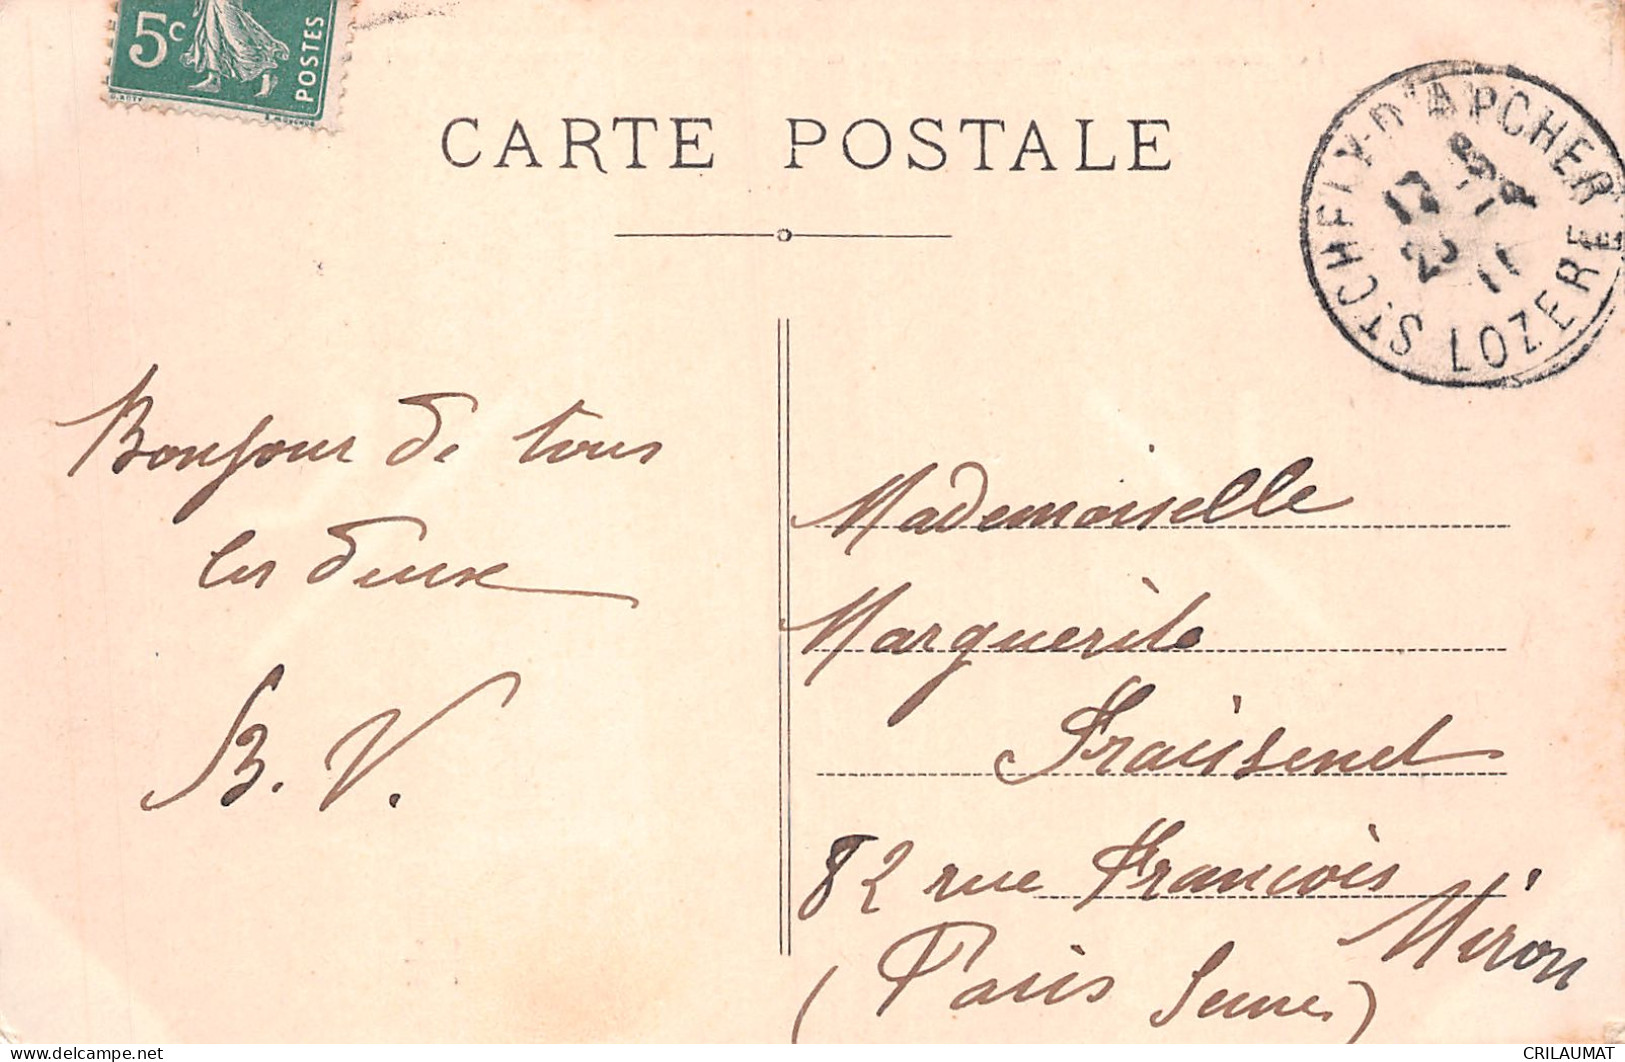 5c
POSTES
CARTE POSTALE
ST CHELY-D'APCHER
LOZERE
17
25 11
Bonjour de tous
les deux
B. V.
Mademoiselle
Marguerite
82 rue François
Miron
(Paris Seine)
CRILAUMAT